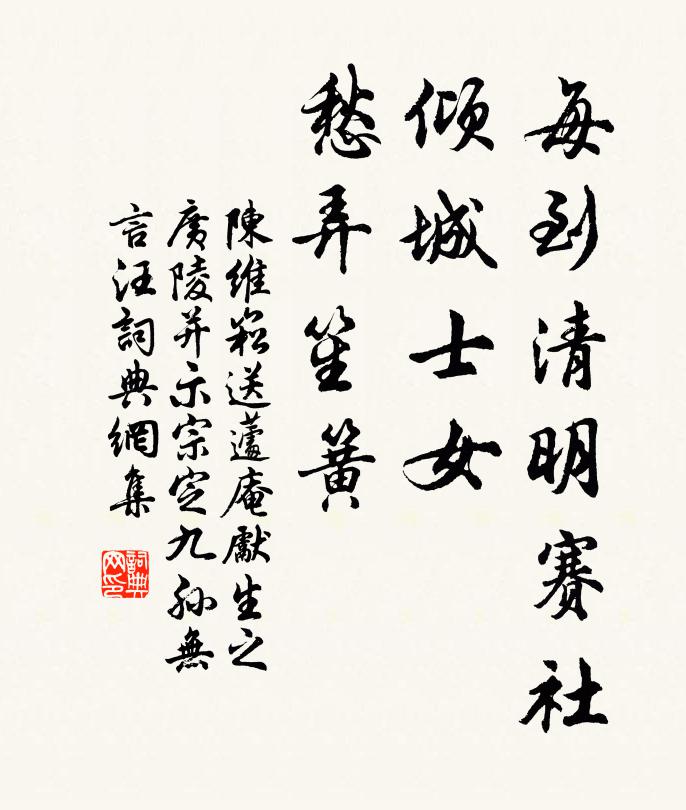 每到清明賽社
傾城士女
愁弄笙簧
陳維崧送蘧庵獻生之
廣陵并示宗定九孫無
言汪詞典網集
詞典網印